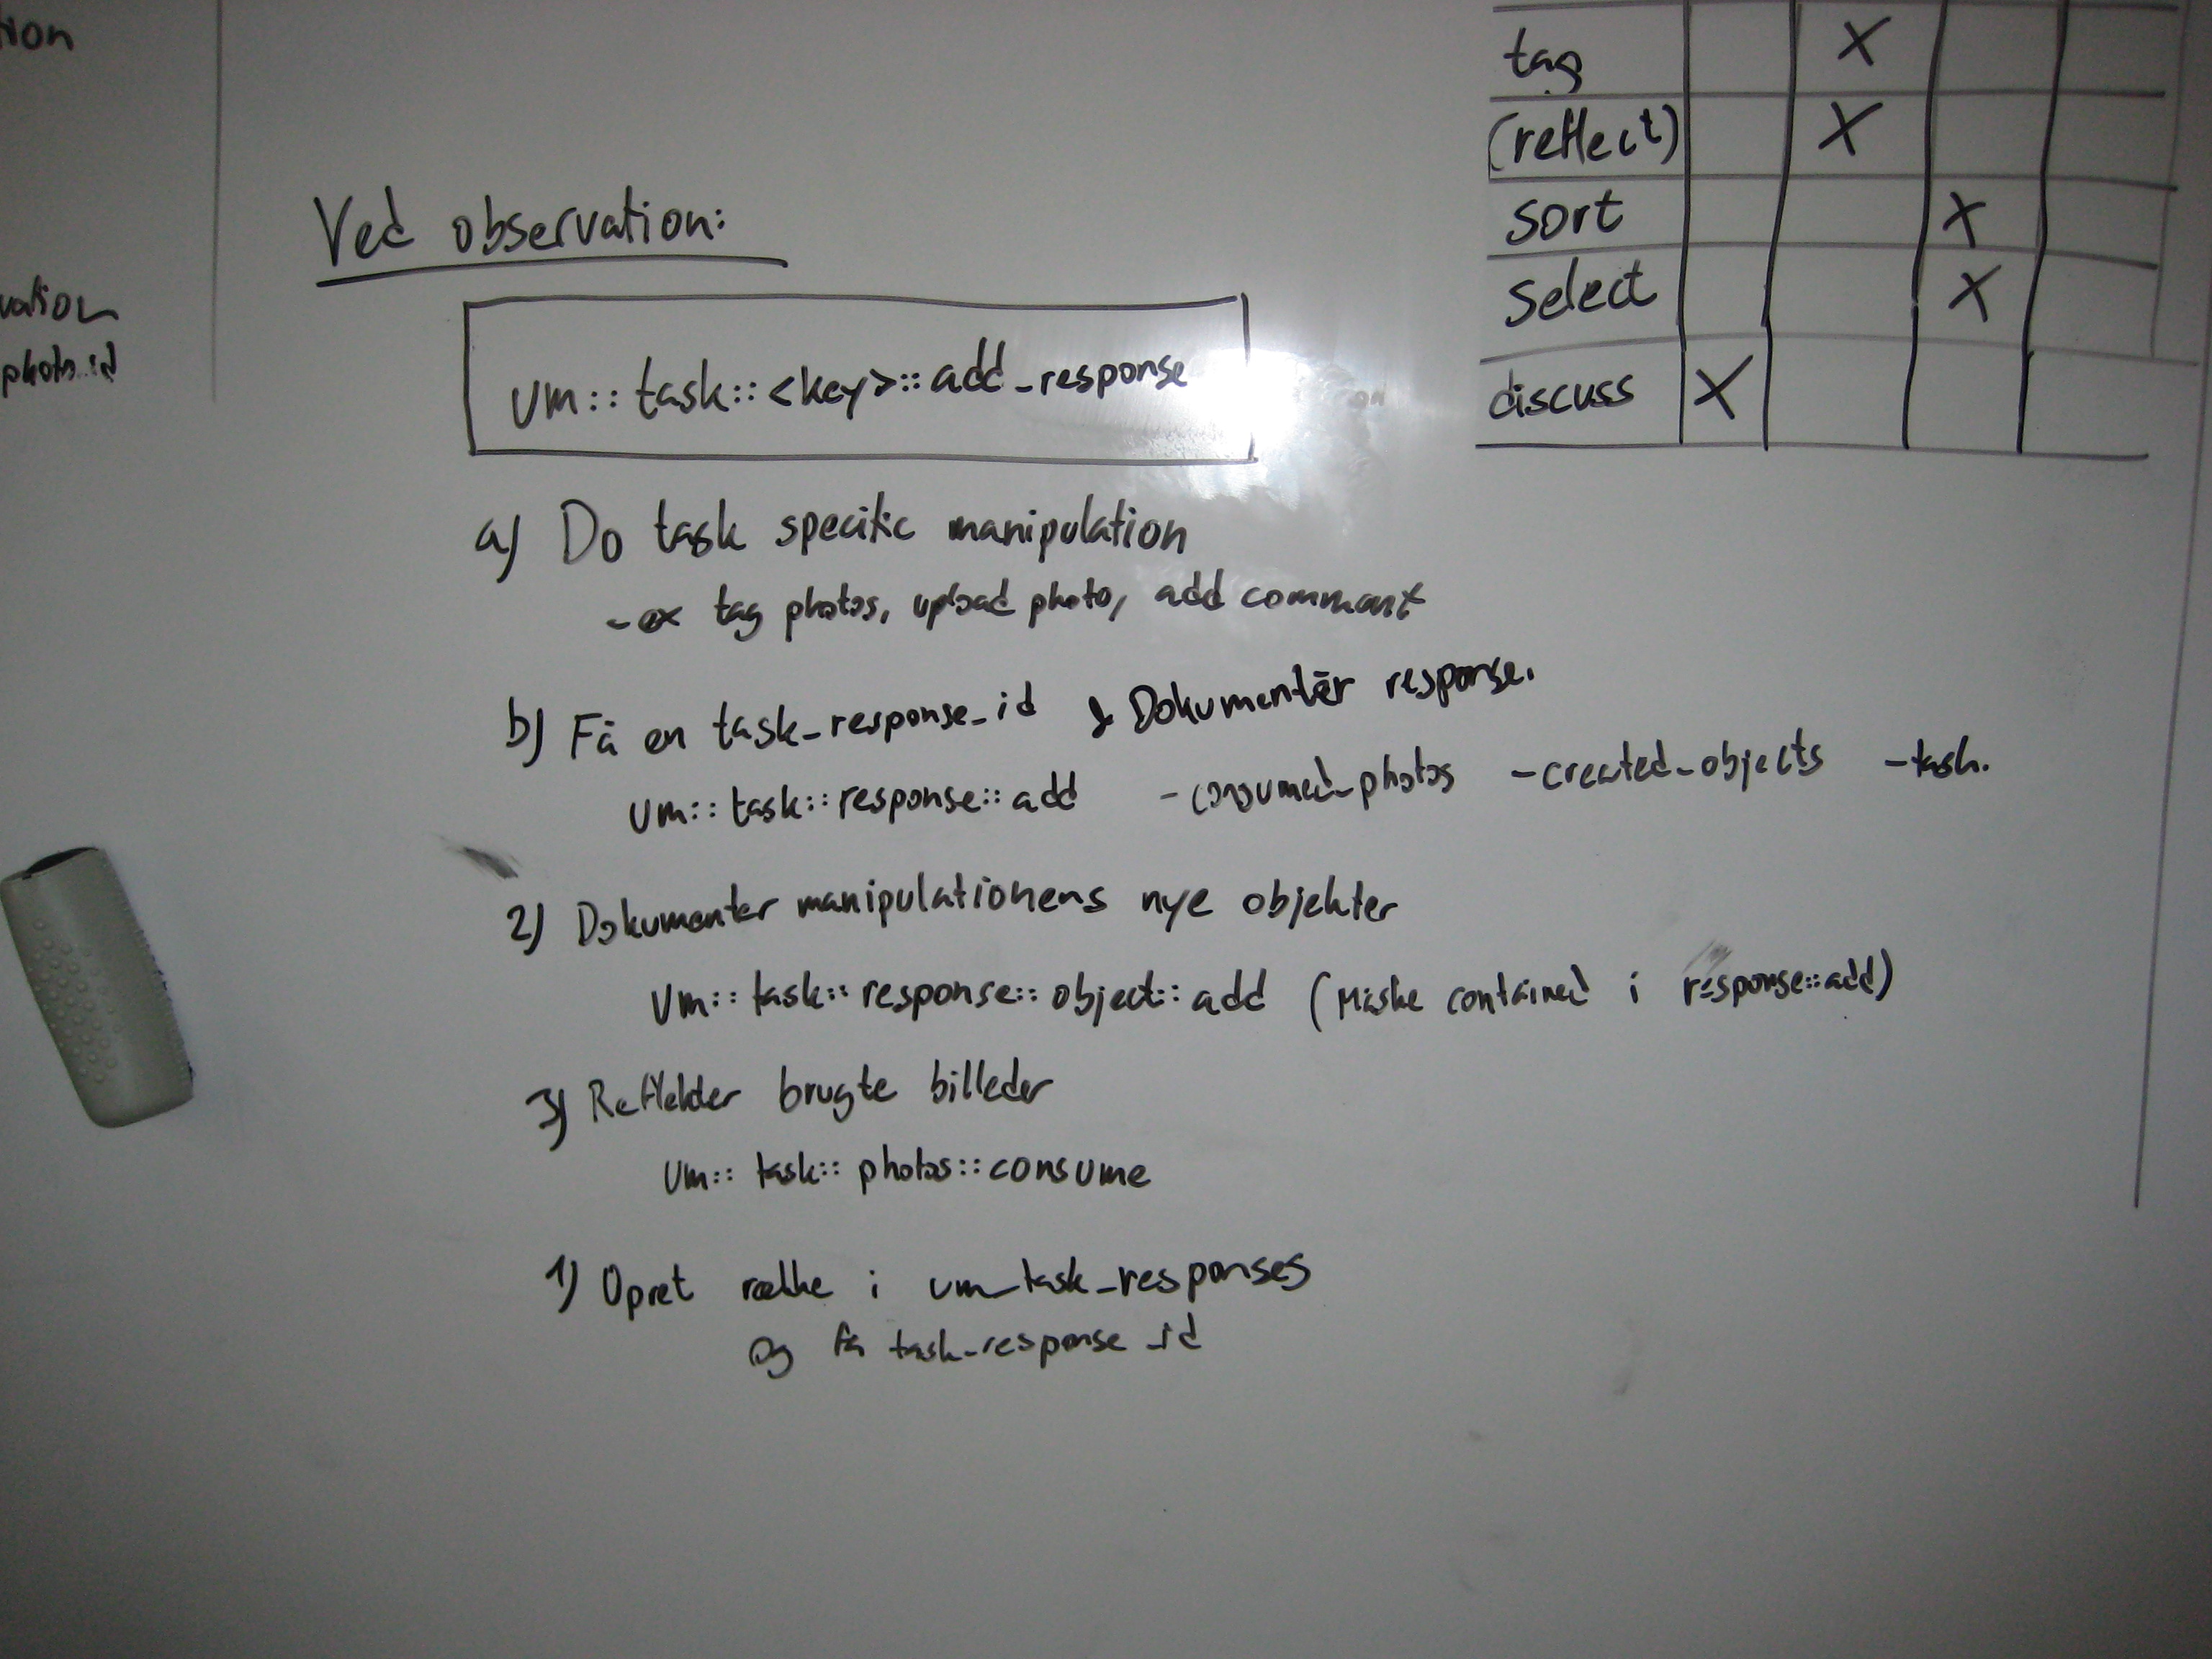 tion
vation
photo_id
Ved observation:
um::task::<key>::add_response
a) Do task specific manipulation
- ex tag photos, upload photo, add comment
b) Få en task_response_id & Dokumentér response.
um::task::response::add -consumed_photos -created_objects -task.
2) Dokumenter manipulationens nye objekter
um::task::response::object::add (Måske contained i response::add)
3) Reflekter brugte billeder
um::task::photos::consume
1) Opret række i um_task_responses
og få task_response_id
tag X
(reflect) X
sort X
select X
discuss X